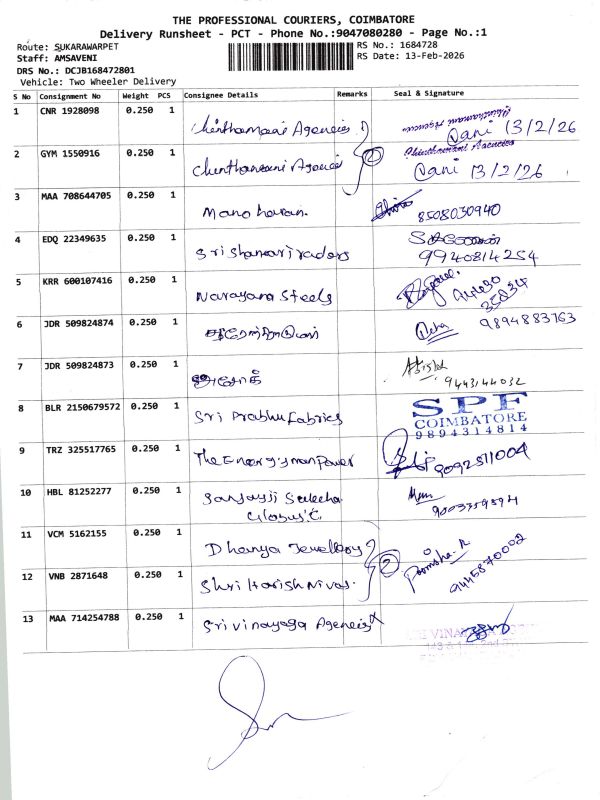 THE PROFESSIONAL COURIERS, COIMBATORE
Delivery Runsheet - PCT - Phone No.:9047080280 - Page No.:1
Route: SUKARAWARPET
RS No.: 1684728
Staff: AMSAVENI
RS Date: 13-Feb-2026
DRS No.: DCJB168472801
Vehicle: Two Wheeler Delivery
S No Consignment No Weight PCS Consignee Details Remarks Seal & Signature
1 CNR 1928098 0.250 1 Chinthamani Agencies Chinthamani Agencies Qani 13/2/26
2 GYM 1550916 0.250 1 Chinthamani Agencies 2 Chinthamani Agencies Qani 13/2/26
3 MAA 708644705 0.250 1 Manoharan. 8508030940
4 EDQ 22349635 0.250 1 Sri Shanmari raders 9940814254
5 KRR 600107416 0.250 1 Narayana Steels 94430 35834
6 JDR 509824874 0.250 1 9894883763
7 JDR 509824873 0.250 1 அசோக் 9443144032
8 BLR 2150679572 0.250 1 Sri Prabhu Fabrics SPF
COIMBATORE
9894314814
9 TRZ 325517765 0.250 1 The Energy man Power 9092511004
10 HBL 81252277 0.250 1 Sanjayji 9003359394
11 VCM 5162155 0.250 1 Dhanya Jewellery
12 VNB 2871648 0.250 1 Shri Harish Nivas. 2 9445870002
13 MAA 714254788 0.250 1 Sri vinayaga Agencies